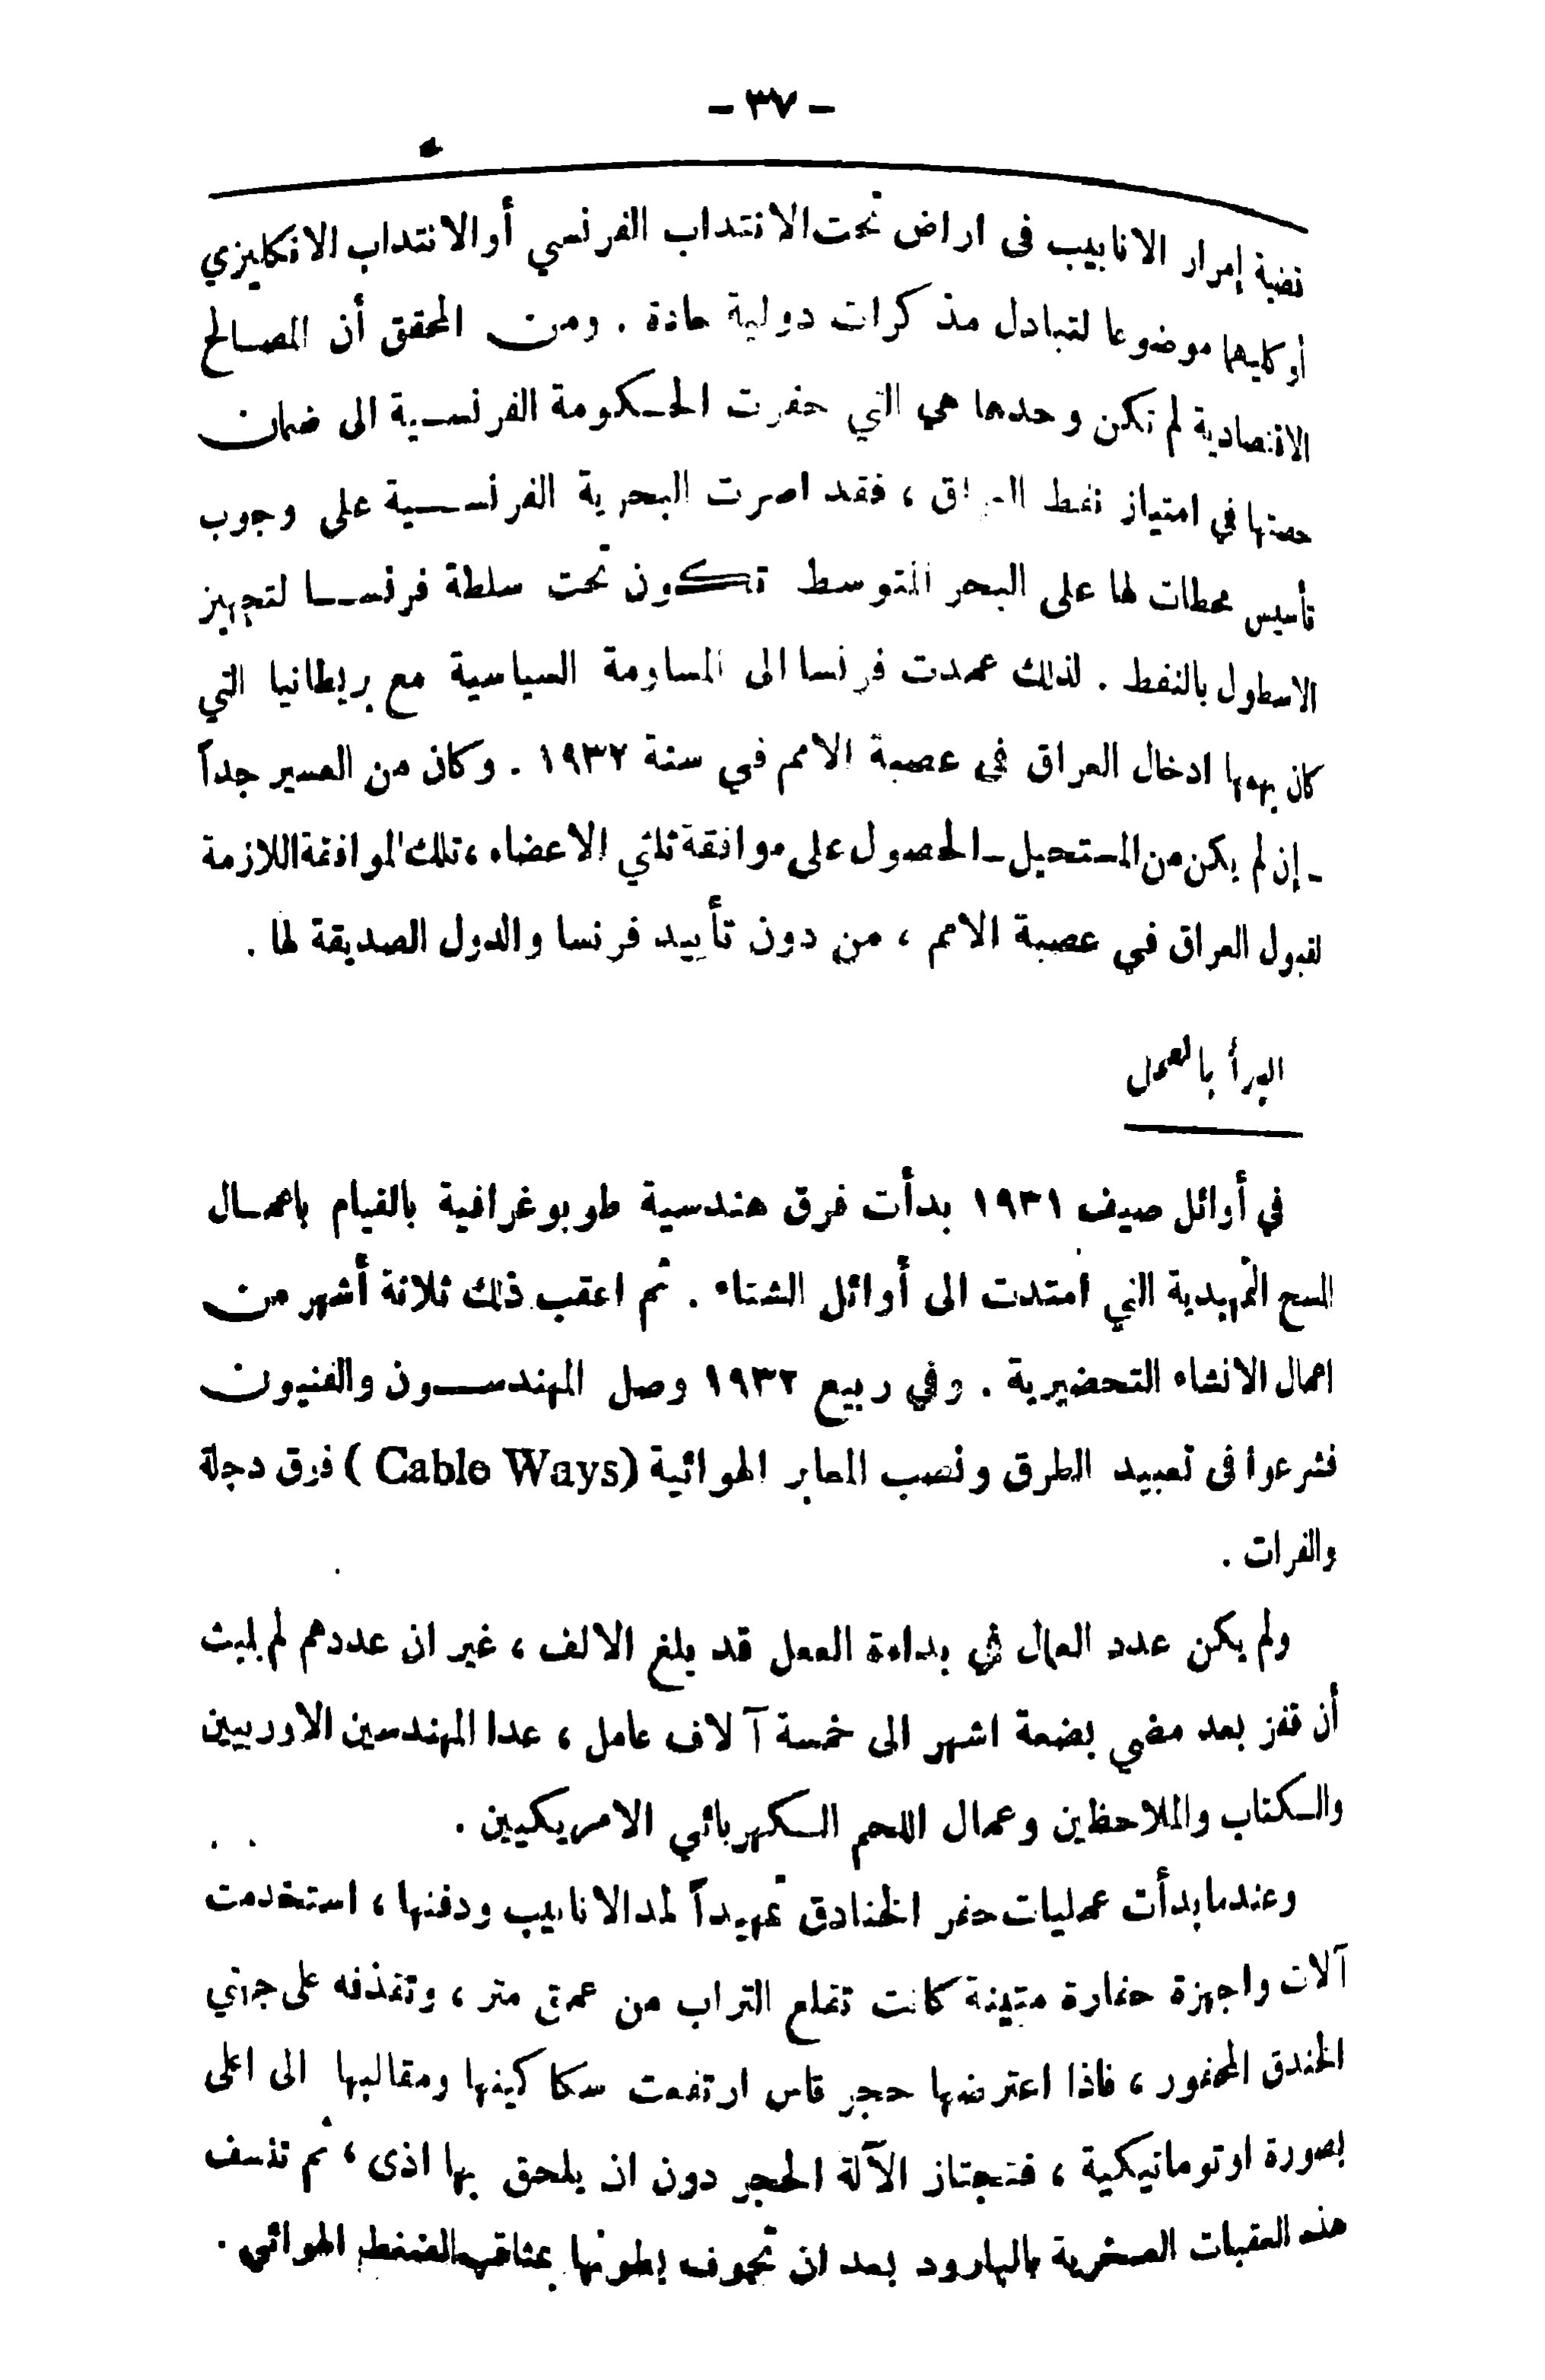 - ٣٧ -
قضية إمرار الانابيب فى اراض تحت الانتداب الفرنسي أو الانتداب الانكليزي
أو كليهما موضوعا لتبادل مذكرات دولية حادة . ومن المحقق أن المصالح
الاقتصادية لم تكن وحدها هي التي حفزت الحكومة الفرنسية الى ضمان
حصتها في امتياز نفط العراق ، فقد اصرت البحرية الفرنسية على وجوب
تأسيس محطات لها على البحر المتوسط تكون تحت سلطة فرنسا لتجهيز
الاسطول بالنفط . لذلك عمدت فرنسا الى المساومة السياسية مع بريطانيا التي
كان يهمها ادخال العراق في عصبة الامم في سنة ١٩٣٢ . وكان من العسير جداً
ـ إن لم يكن من المستحيل ـ الحصول على موافقة ثلثي الاعضاء ، تلك الموافقة اللازمة
لقبول العراق في عصبة الامم ، من دون تأييد فرنسا والدول الصديقة لها .
البدأ بالعمل
في أوائل صيف ١٩٣١ بدأت فرق هندسية طوبوغرافية بالقيام باعمال
المسح التمهيدية التي امتدت الى أوائل الشتاء . ثم اعقب ذلك ثلاثة أشهر من
اعمال الانشاء التحضيرية . وفي ربيع ١٩٣٢ وصل المهندسون والفنيون
فشرعوا فى تعبيد الطرق ونصب المعابر الهوائية (Cable Ways ) فوق دجلة
والفرات .
ولم يكن عدد العمال في بداءة العمل قد بلغ الالف ، غير ان عددهم لم يلبث
أن قفز بعد مضي بضعة اشهر الى خمسة آلاف عامل ، عدا المهندسين الاوربيين
والكتاب والملاحظين وعمال اللحم الكهربائي الامريكيين .
وعندما بدأت عمليات حفر الخنادق تمهيداً لمد الانابيب ودفنها ، استخدمت
آلات واجهزة حفارة متينة كانت تقلع التراب من عمق متر ، وتقذفه على جهتي
الخندق المحفور ، فاذا اعترضها حجر قاس ارتفعت سكاكينها ومقالبها الى اعلى
بصورة اوتوماتيكية ، فتجتاز الآلة الحجر دون ان يلحق بها اذى ، ثم تنسف
هذه العقبات الصخرية بالبارود بعد ان تجوف بطونها بمثاقب الضغط الهوائي .